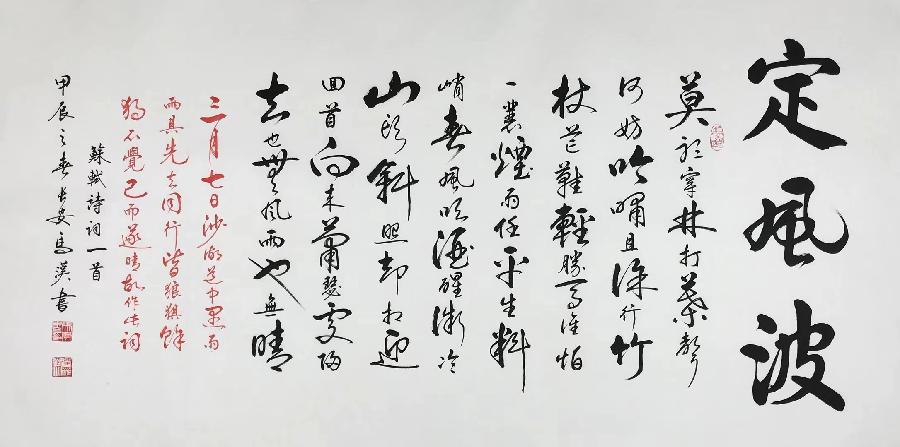 定風波
莫聽穿林打葉聲
何妨吟嘯且徐行竹
杖芒鞋輕勝馬誰怕
一蓑煙雨任平生料
峭春風吹酒醒微冷
山頭斜照却相迎
回首向來蕭瑟處歸
去也無風雨也無晴
三月七日沙湖道中遇雨
雨具先去同行皆狼狽餘
獨不覺已而遂晴故作此詞
蘇軾詩詞一首
甲辰之春長安馬漢書